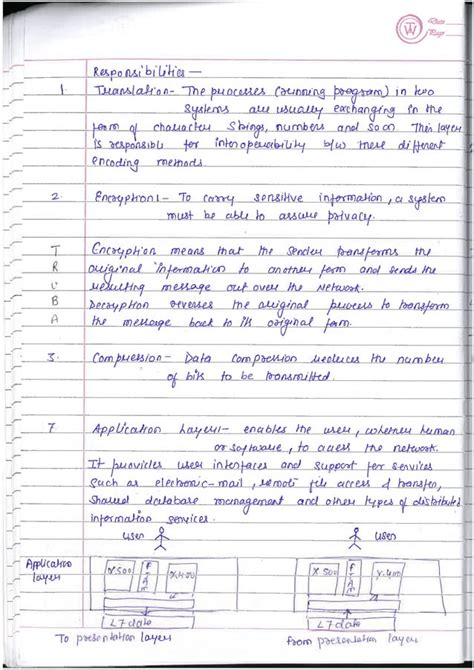 TW
Date
Page
Responsibilities —
1. Translation - The processes (running program) in two
systems are usually exchanging in the
form of character strings, numbers and soon This layer
is responsible for interoperability b/w these different
encoding methods.
2. Encryption :- To carry sensitive information, a system
must be able to assure privacy.
T
R
B
A
Encryption means that the sender transforms the
original information to another form and sends the
resulting message out over the Network.
Decryption reverses the original process to transform
the message back to its original form.
3. Compression - Data compression reduces the number
of bits to be transmitted.
7. Application Layer :- enables the user, whether human
or software, to access the network.
It provides user interfaces and support for services
such as electronic-mail, remote file access & transfer,
shared database management and other types of distributed
information services.
user
user
Application
layer
X.500
X.400
X 500
X.400
L7 data
L7 data
To presentation layer
from presentation layer